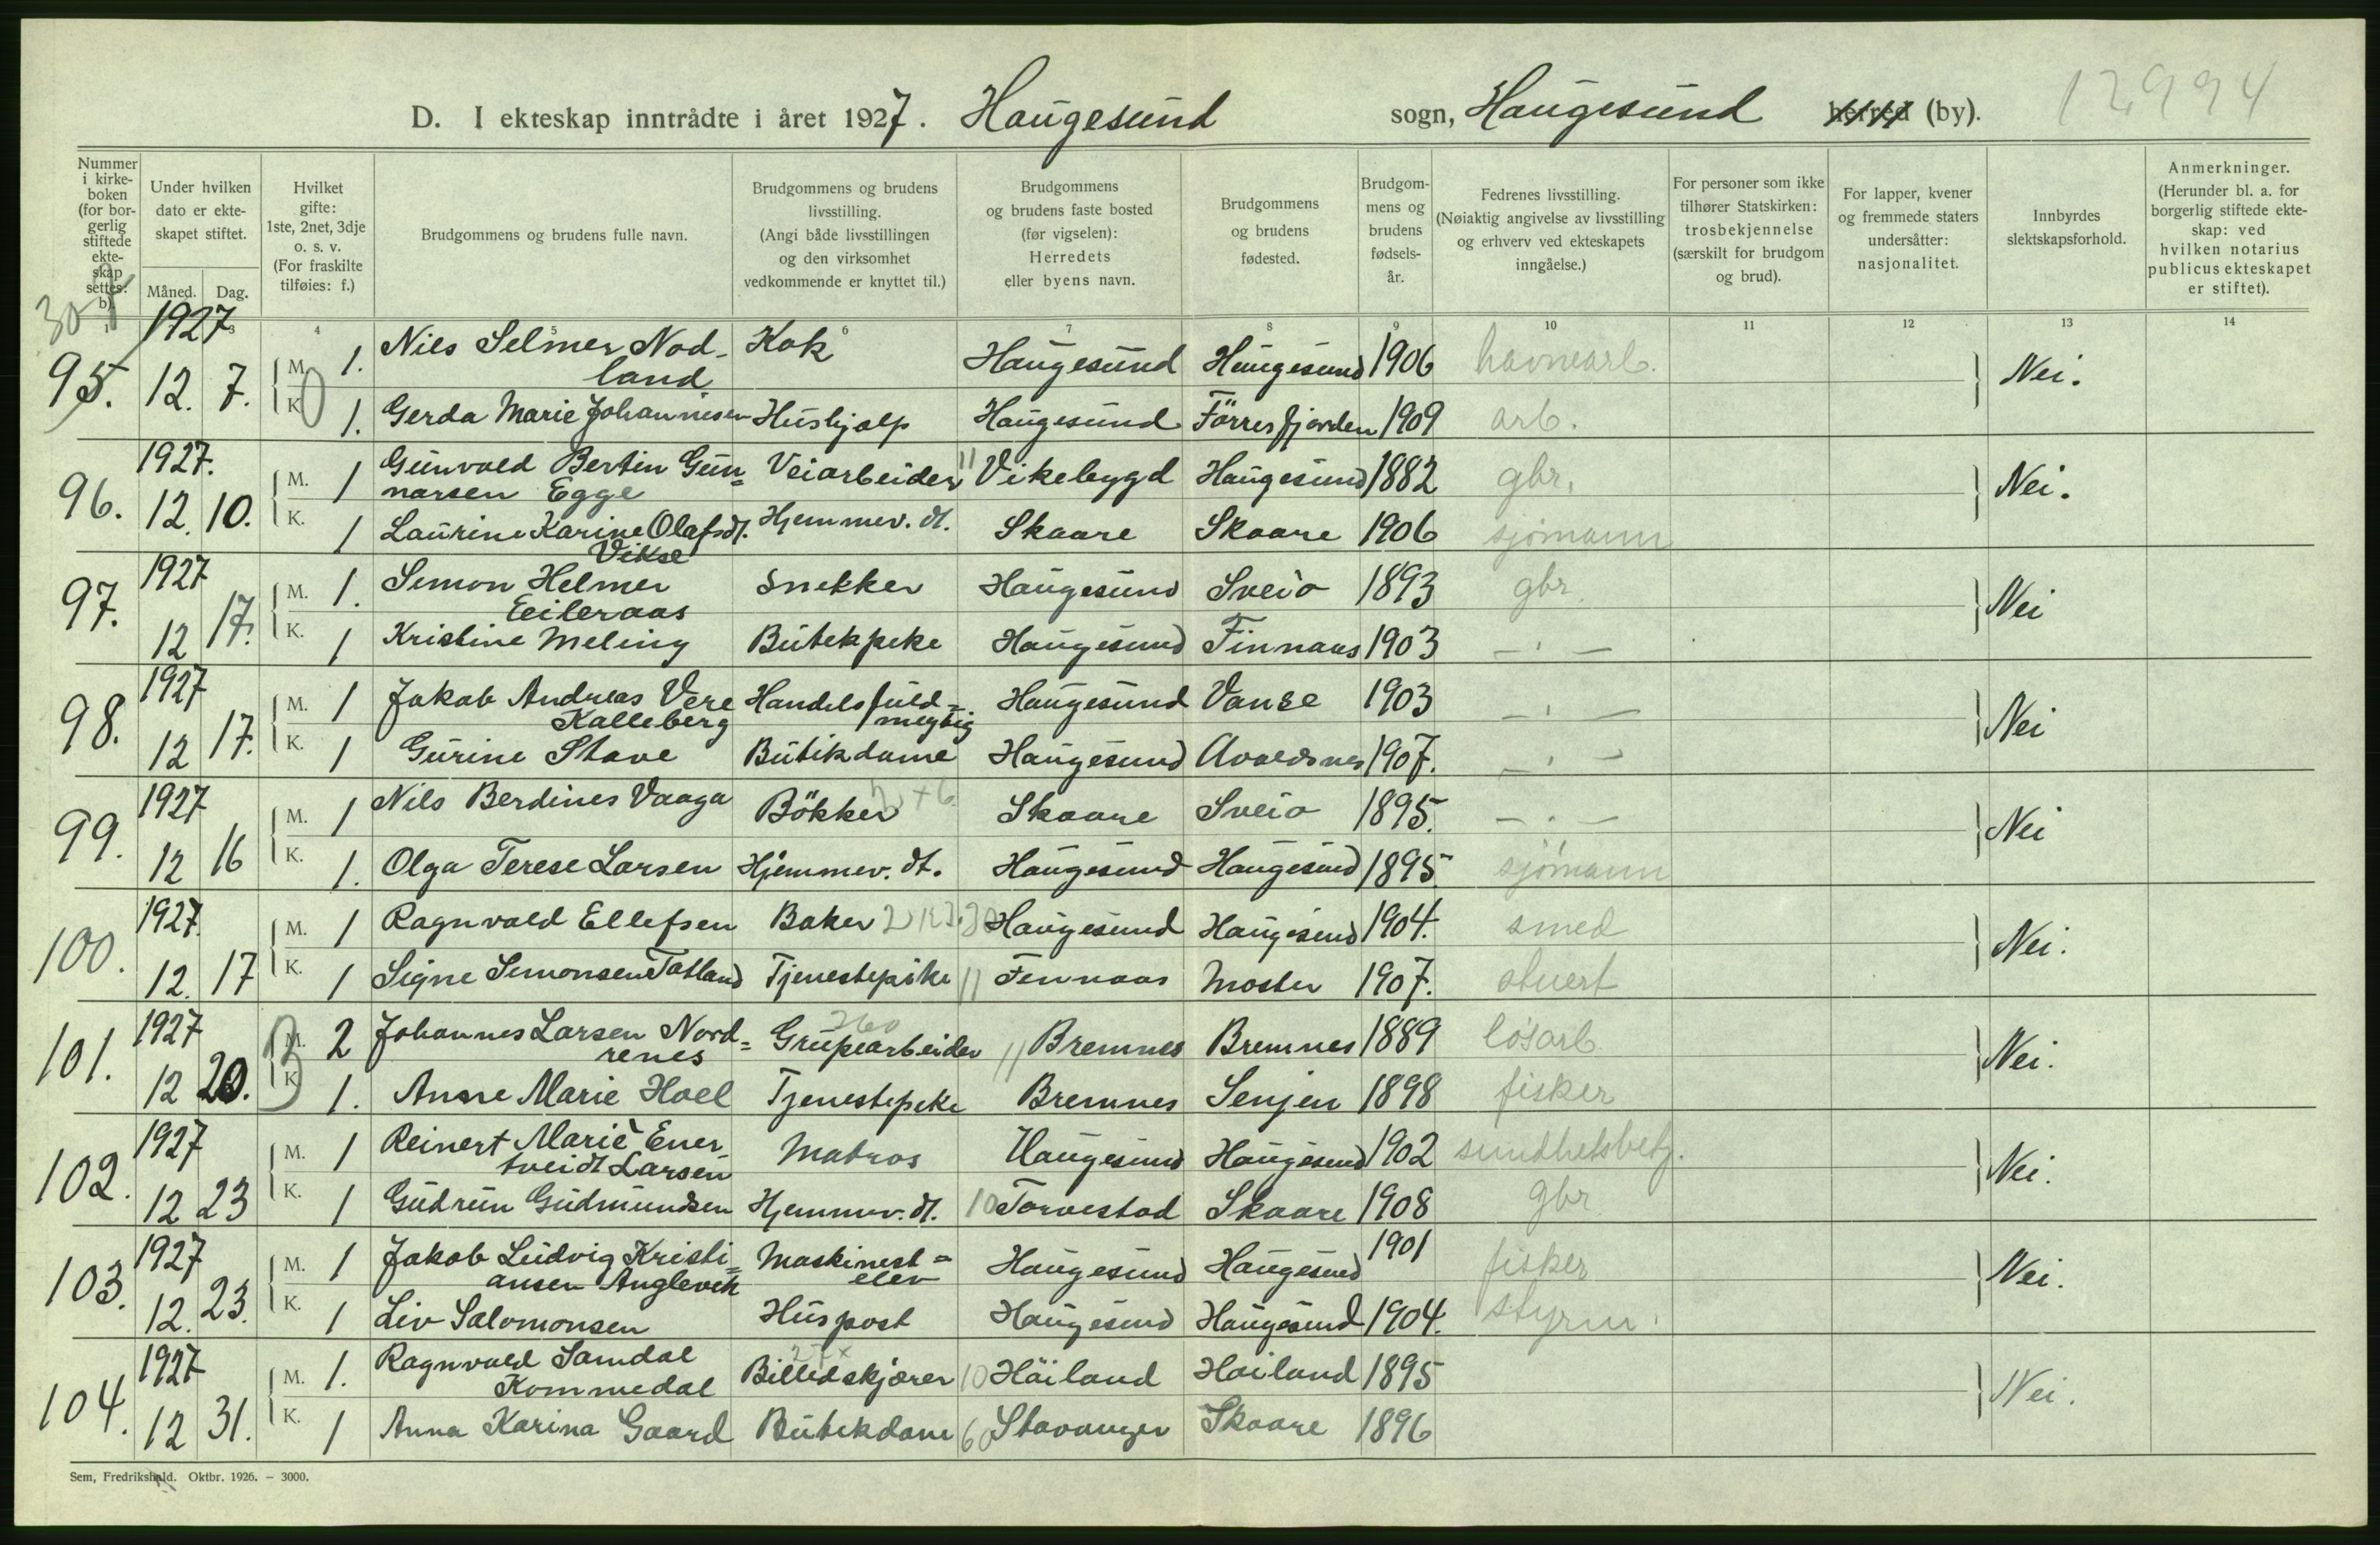 D. I ekteskap inntrådte i året 1927. Haugesund sogn, Haugesund herred (by). 12994
Nummer i kirkeboken (for borgerlig stiftede ekteskap settes: b).
Under hvilken dato er ekteskapet stiftet.
Måned. Dag.
Hvilket gifte: 1ste, 2net, 3dje o. s. v. (For fraskilte tilføies: f.)
Brudgommens og brudens fulle navn.
Brudgommens og brudens livsstilling. (Angi både livsstillingen og den virksomhet vedkommende er knyttet til.)
Brudgommens og brudens faste bosted (før vigselen): Herredets eller byens navn.
Brudgommens og brudens fødested.
Brudgommens og brudens fødselsår.
Fedrenes livsstilling. (Nøiaktig angivelse av livsstilling og erhverv ved ekteskapets inngåelse.)
For personer som ikke tilhører Statskirken: trosbekjennelse (særskilt for brudgom og brud).
For lapper, kvener og fremmede staters undersåtter: nasjonalitet.
Innbyrdes slektskapsforhold.
Anmerkninger. (Herunder bl. a. for borgerlig stiftede ekteskap: ved hvilken notarius publicus ekteskapet er stiftet).
1 3 4 5 6 7 8 9 10 11 12 13 14
1927
95. 12. 7. M. 1. Nils Selmer Nodland Kok Haugesund Haugesund 1906 havnearb. Nei.
K. 1. Gerda Marie Johannesen Hushjælp Haugesund Förresfjorden 1909 arb.
1927.
96. 12. 10. M. 1 Gunvald Bertin Gunnarsen Egge Veiarbeider 11 Vikebygd Haugesund 1882 gbr. Nei.
K. 1 Laurine Karine Olafsdt. Vikse Hjemmev. dt. Skaare Skaare 1906 sjömann
1927
97. 12 17. M. 1. Simon Helmer Eileraas Snekker Haugesund Sveio 1893 gbr. Nei
K. 1 Kristine Meling Butikpike Haugesund Finnaas 1903 — · —
1927
98. 12 17. M. 1 Jakob Andreas Vere Kalleberg Handelsfuldmegtig Haugesund Vanse 1903 — · — Nei
K. 1 Gurine Stave Butikdame Haugesund Avaldsnes 1907. — · —
1927
99. 12 16 M. 1 Nils Berdines Vaaga Bökker Skaare Sveio 1895. — · — Nei
K. 1. Olga Terese Larsen Hjemmev. dt. Haugesund Haugesund 1895. sjömann
1927.
100. 12. 17 M. 1 Ragnvald Ellefsen Baker Haugesund Haugesund 1904. smed Nei.
K. 1 Signe Simonsen Totland Tjenestepike 11 Finnaas Moster 1907. stuert
1927
101. 12 20. M. 2 Johannes Larsen Nordrenes Grupearbeider 11 Bremnes Bremnes 1889 lösarb. Nei.
K. 1. Anne Marie Hoel Tjenestepike Bremnes Senjen 1898 fisker
1927
102. 12 23 M. 1 Reinert Marie Enertveidt Larsen Matros Haugesund Haugesund 1902 sundhetsbetj. Nei.
K. 1 Gudrun Gudmundsen Hjemmev. dt. 10 Torvestad Skaare 1908 gbr
1927
103. 12. 23. M. 1 Jakob Ludvig Kristiansen Anglevik Maskinistelev Haugesund Haugesund 1901 fisker Nei.
K. 1 Liv Salomonsen Huspost Haugesund Haugesund 1904. styrm.
1927
104. 12 31. M. 1. Ragnvald Samdal Kommedal Billedskjærer 10 Höiland Höiland 1895 Nei.
K. 1 Anna Karina Gaard Butikdame 60 Stavanger Skaare 1896
Sem, Fredrikshald. Oktbr. 1926. – 3000.